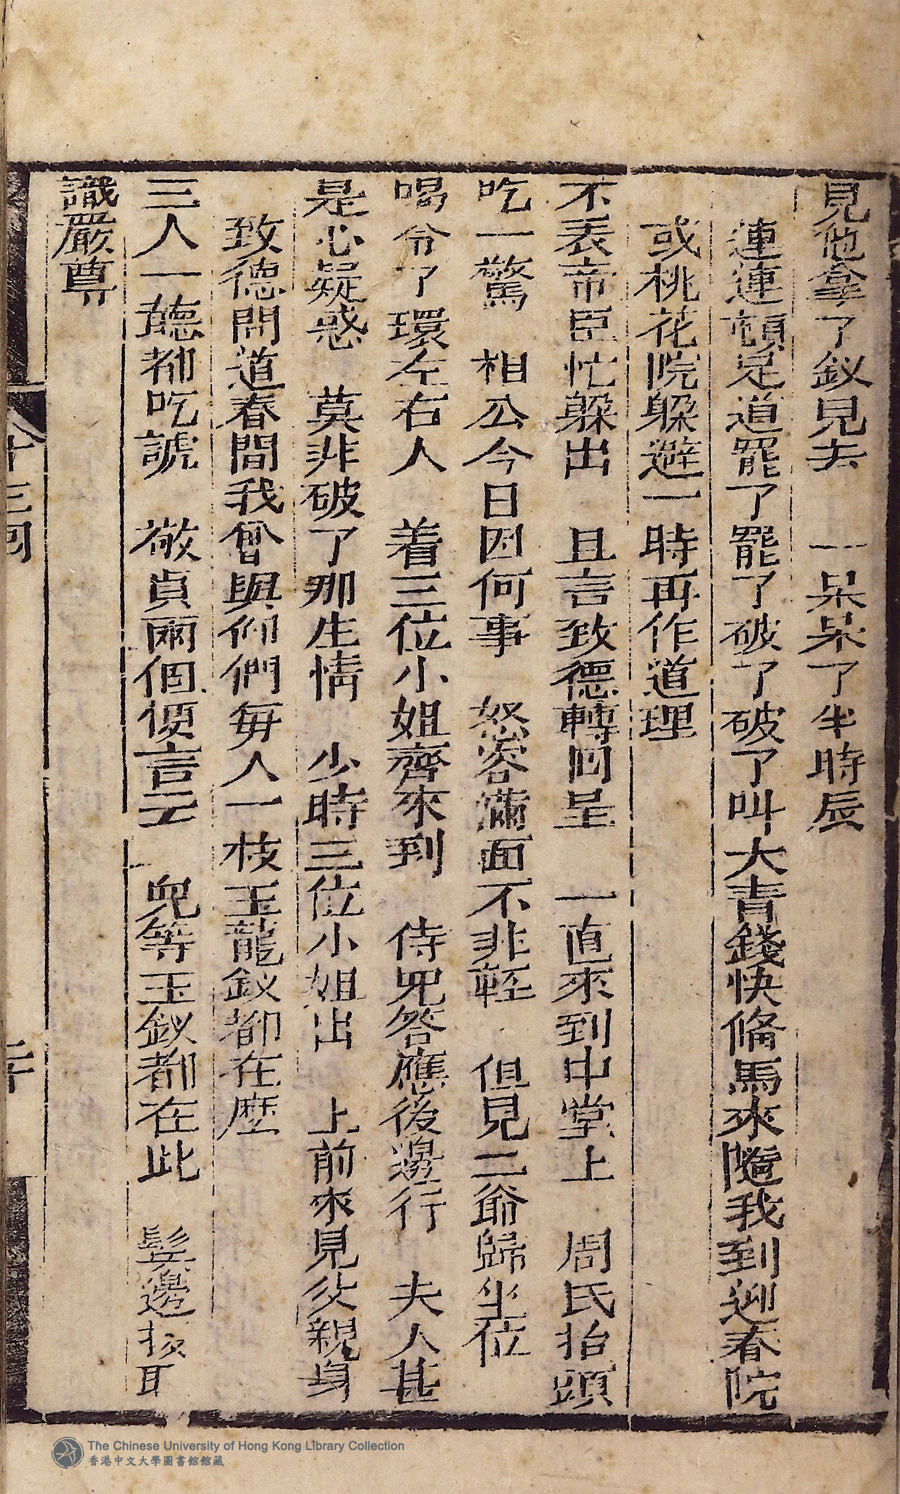 見他拿了釵兒去　一呆呆了半時辰
連連頓足道罷了罷了破了破了叫大青錢快俻馬來隨我到迎春院
或桃花院躱避一時再作道理
不表帝臣忙躱出　且言致德轉回呈　一直來到中堂上　周氏抬頭
吃一驚　相公今日因何事　怒容滿面不非輕　但見二爺歸坐位
喝令了環左右人　着三位小姐齊來到　侍兒答應後邊行　夫人甚
是心疑惑　莫非破了那生情　少時三位小姐出　上前來見父親身
致德問道春間我曾與伱們毎人一枝玉龍釵都在麽
三人一聽都吃諕　敬貞兩個便言云　兒等玉釵都在此　鬂邊拔
識嚴尊
十三囬
The Chinese University of Hong Kong Library Collection
香港中文大學圖書館館藏